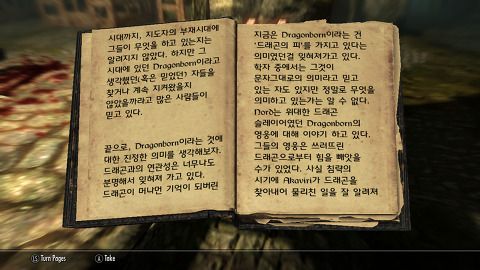 시대까지, 지도자의 부재시대에
그들이 무엇을 하고 있는지는
알려지지 않았다. 하지만 그
시대에 있던 Dragonborn이라고
생각했던(혹은 믿었던) 자들을
찾거나 계속 지켜왔을지
않았을까라고 많은 사람들이
믿고 있다.
끝으로, Dragonborn이라는 것에
대한 진정한 의미를 생각해보자.
드래곤과의 연관성은 너무나도
분명해서 잊혀져 가고 있다.
드래곤이 머나먼 기억이 되버린
지금은 Dragonborn이라는 건
'드래곤의 피'를 가지고 있다는
의미였던걸 잊혀져가고 있다.
학자 중에서는 그것이
문자그대로의 의미라고 믿고
있는 자도 있지만 정말로 무엇을
의미하고 있는가는 알 수 없다.
Nord는 위대한 드래곤
슬레이어였던 Dragonborn의
영웅에 대해 이야기 하고 있다.
그들의 영웅은 쓰러뜨린
드래곤으로부터 힘을 빼앗을
수가 있었다. 사실 침략의
시기에 Akaviri가 드래곤을
찾아내어 물리친 일을 잘 알려져
LS Turn Pages A Take